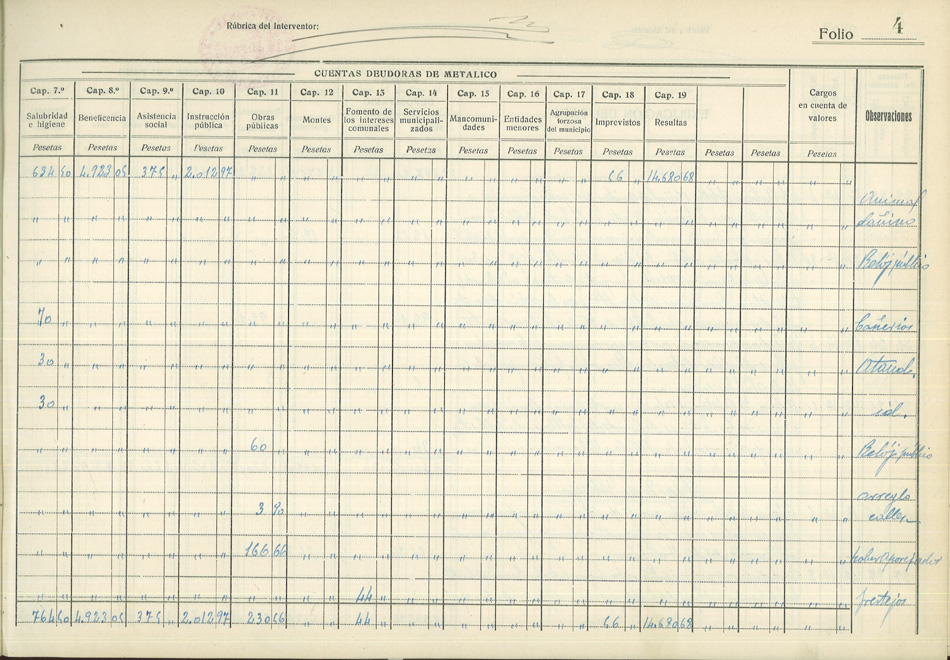 Rúbrica del Interventor:
Folio 4
CUENTAS DEUDORAS DE METALICO
Cap. 7.º Cap. 8.º Cap. 9.º Cap. 10 Cap. 11 Cap. 12 Cap. 13 Cap. 14 Cap. 15 Cap. 16 Cap. 17 Cap. 18 Cap. 19
Salubridad e higiene
Beneficencia
Asistencia social
Instrucción pública
Obras públicas
Montes
Fomento de los intereses comunales
Servicios municipali-zados
Mancomuni-dades
Entidades menores
Agrupación forzosa del municipio
Imprevistos
Resultas
Cargos en cuenta de valores
Observaciones
Pesetas Pesetas Pesetas Pesetas Pesetas Pesetas Pesetas Pesetas Pesetas Pesetas Pesetas Pesetas Pesetas Pesetas Pesetas Pesetas
634 50 4.923 05 375 " 2.012 97 " " " " " " " " " " " " " " 66 " 14.680 68 " " " " " "
Animal
dañino
Relój público
70 "
30 "
30 " id.
60 Relój público
3 90 arreglo
calles
166 66
44
764 50 4.923 05 375 " 2.012 97 230 56 " " 44 " 66 " 14.680 68